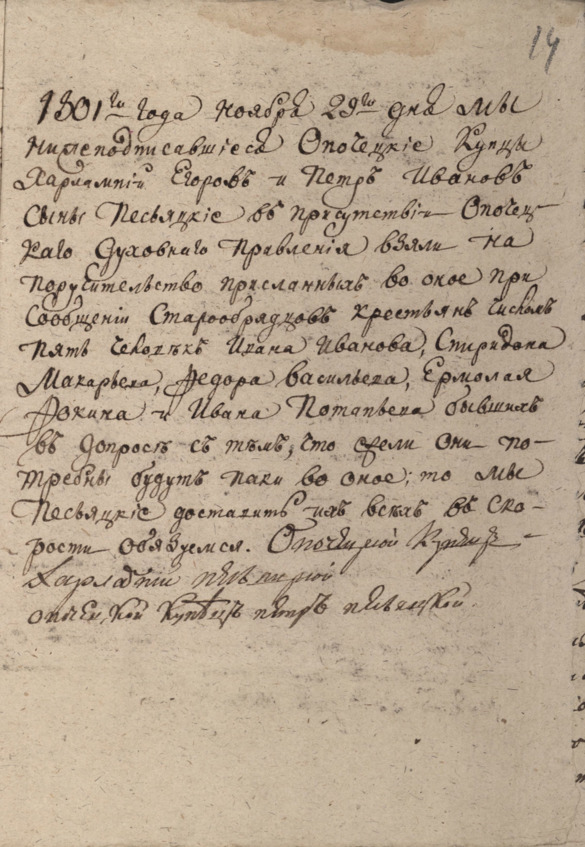 14
1801го года ноября 29го дня мы
нижеподписавшіеся Опочецкіе Купцы
Харлампій Егоровъ и Петръ Ивановъ
сыны Песьяцкіе въ присутствіи Опочец-
каго Духовнаго Правленія взяли на
поручительство присланныхъ во оное при
Сообщеніи Старообрядцовъ крестьянъ числомъ
пять человѣкъ Ивана Иванова, Спиридона
Макарьева, Федора Васильева, Ермолая
Фокина и Ивана Потапьева бывшихъ
въ допросѣ съ тѣмъ, что ежели они по-
требны будутъ паки во оное; то мы
Песьяцкіе доставить ихъ всѣхъ въ ско-
рости обязуемся. Опочецкой Купецъ
Харлампій песьяцкой
опочецкой Купецъ петръ песьяцкой.